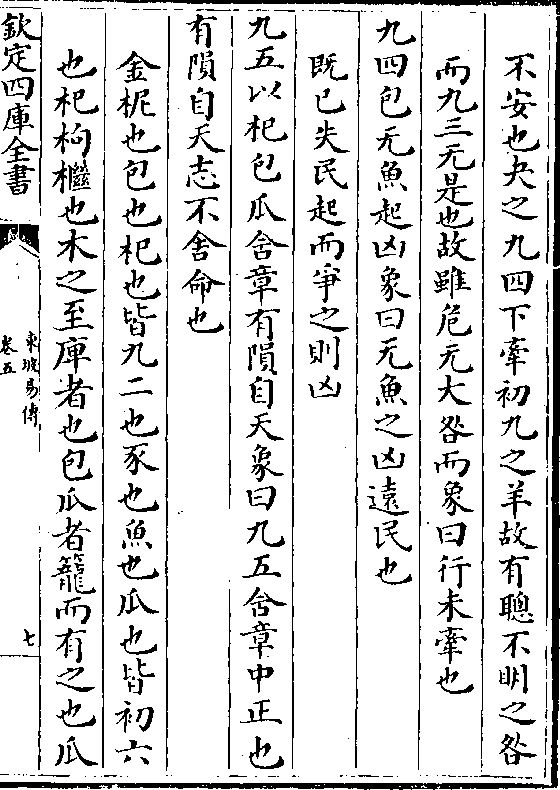 不安也夬之九四下牽初九之羊故有聰不明之咎
而九三无是也故雖危无大咎而象曰行未牽也
九四包无魚起凶象曰无魚之凶遠民也
既已失民起而爭之則凶
九五以杞包瓜舍章有隕自天象曰九五舍章中正也
有隕自天志不舍命也
金柅也包也杞也皆九二也豕也魚也瓜也皆初六
也杞枸檵也木之至庳者也包瓜者籠而有之也瓜
欽定四庫全書
東坡易傳
卷五
七